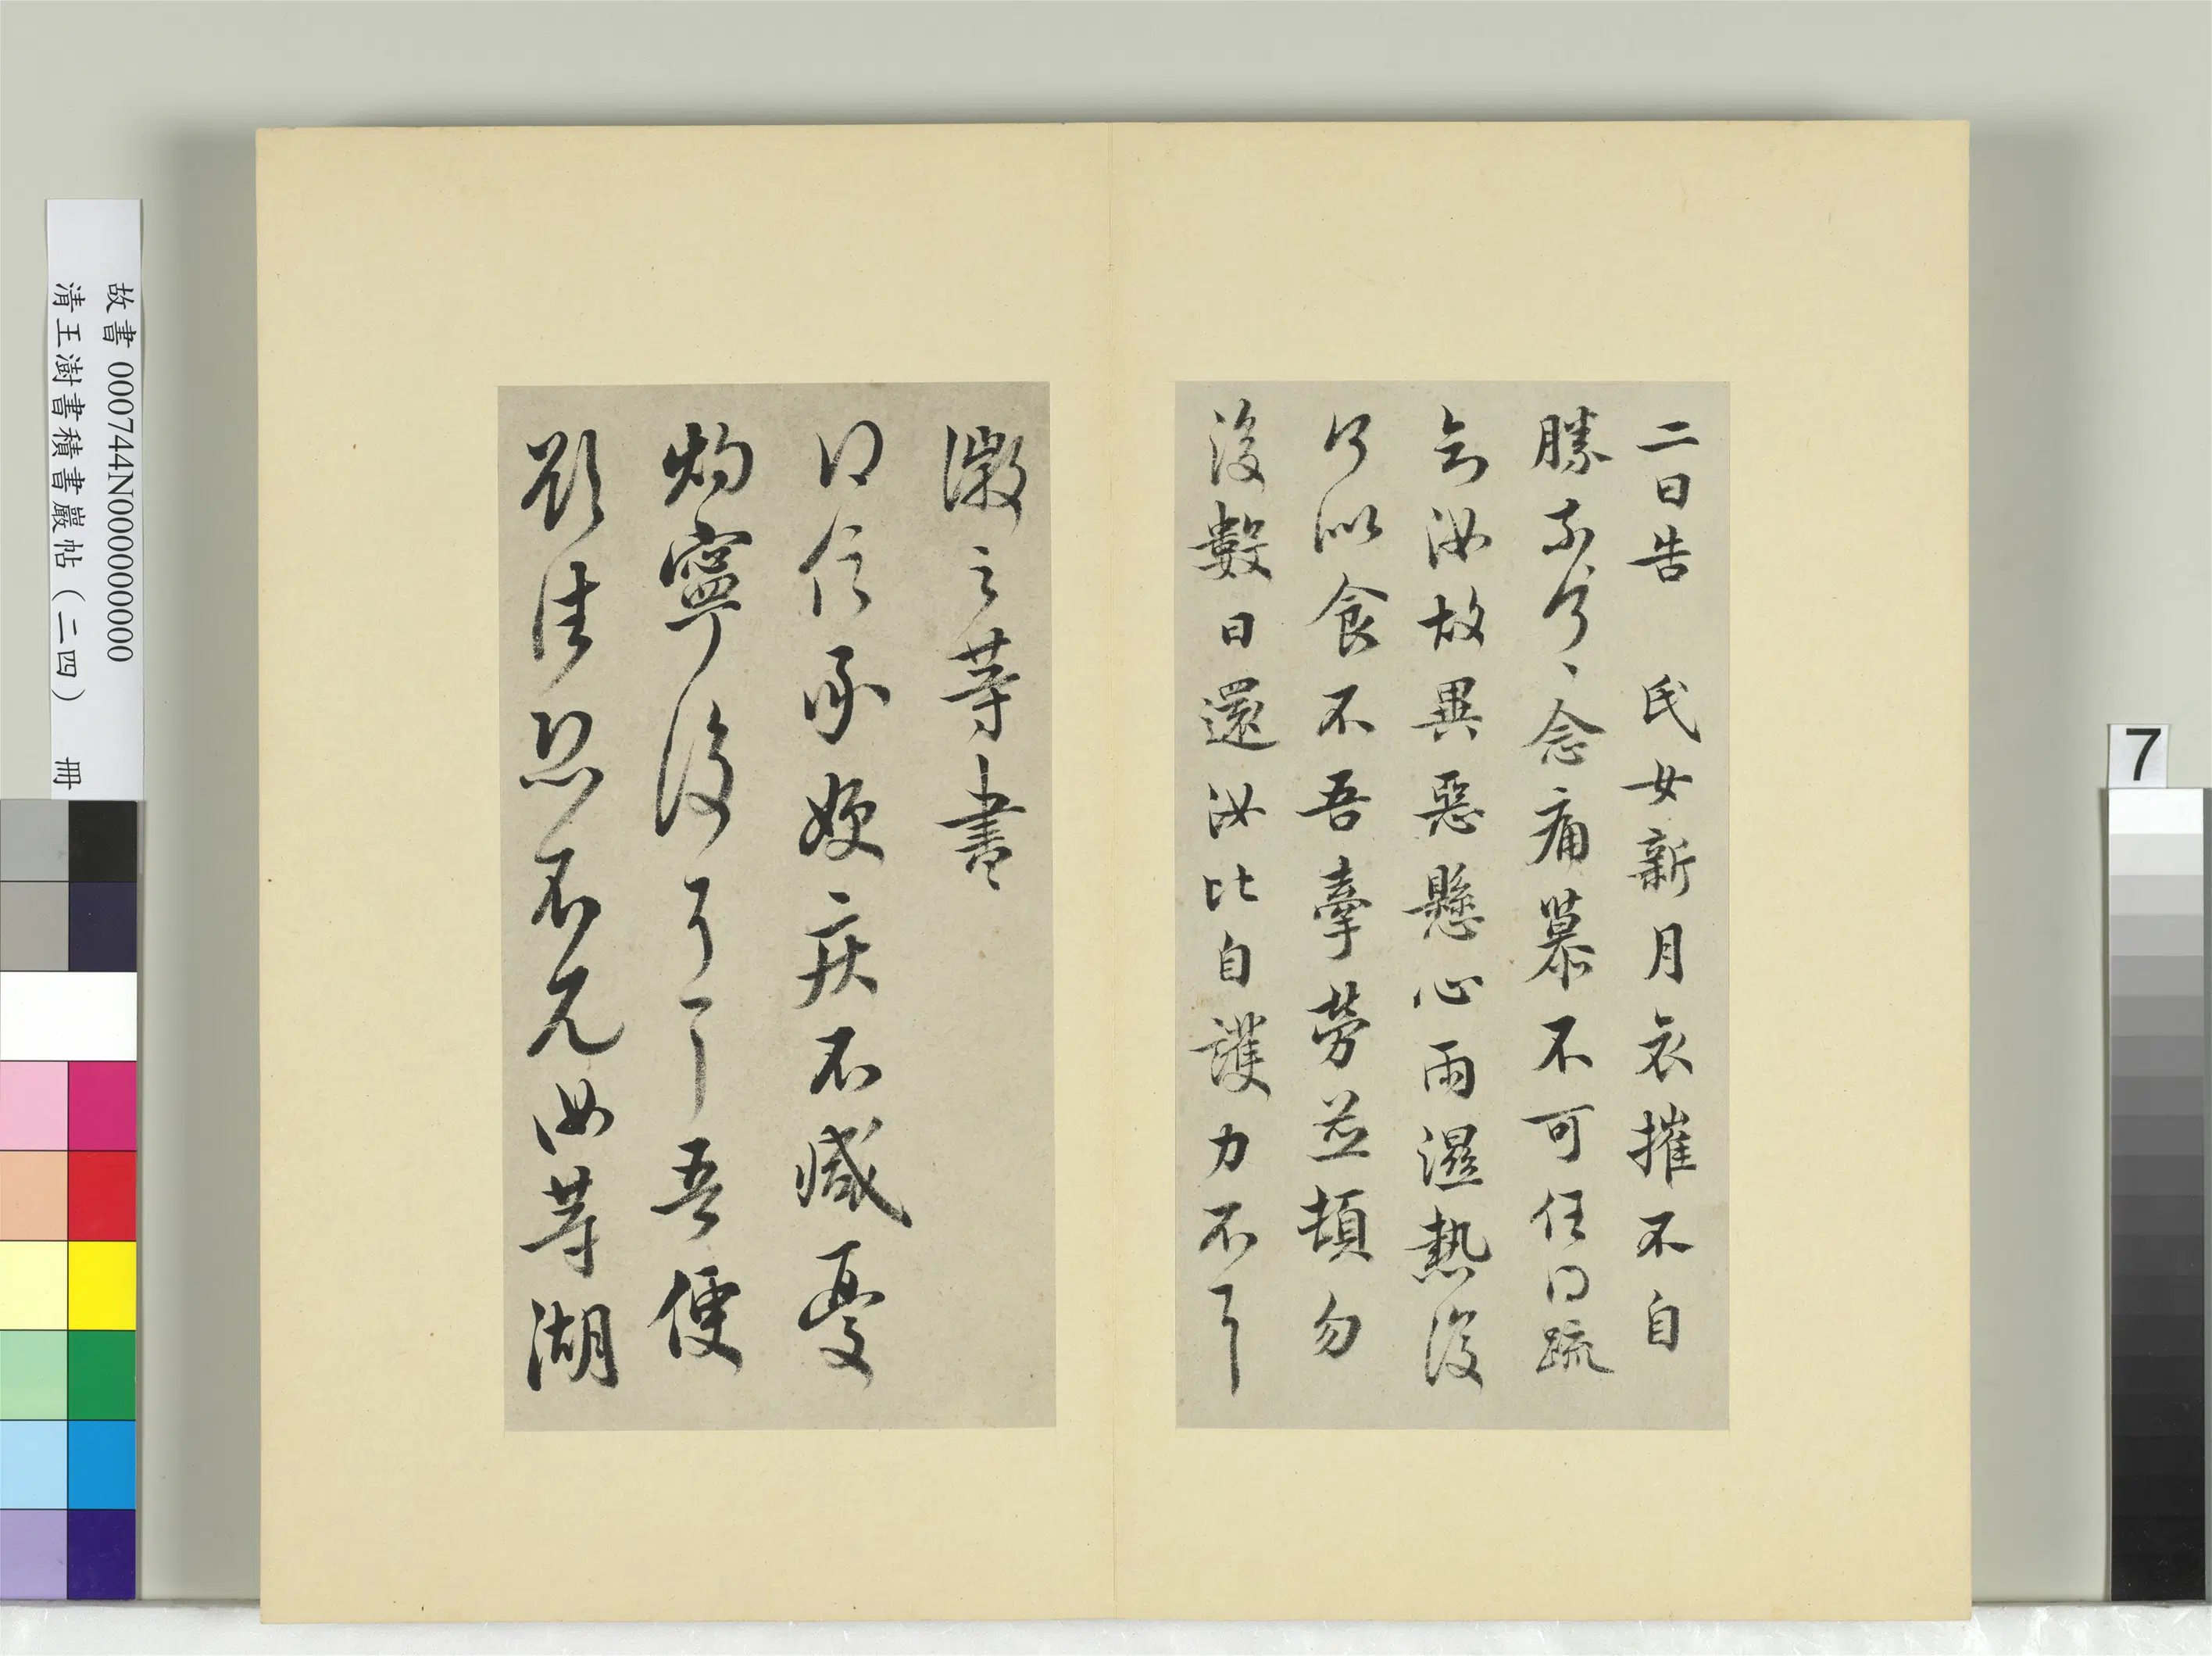 二日告 氏女新月哀摧不自
勝奈何、念痛慕不可任得疏
知汝故異惡懸心雨濕熱復
何似食不吾牽勞並頓勿
復數日還汝比自護力不具
徽之等書
得信承嫂疾不減憂
灼寧復可言吾便
欲往恐不见汝等湖
故書 000744N000000000
清王澍書積書巖帖（二四） 冊
7